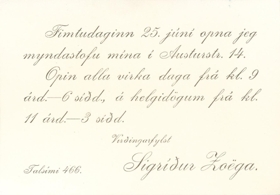 Fimtudaginn 25. júní opna jeg
myndastofu mína í Austurstr. 14.
Opin alla virka daga frá kl. 9
árd.—6 sídd., á helgidögum frá kl.
11 árd.—3 sídd.
Virdingarfylst
Talsími 466. Sigrídur Zoëga.